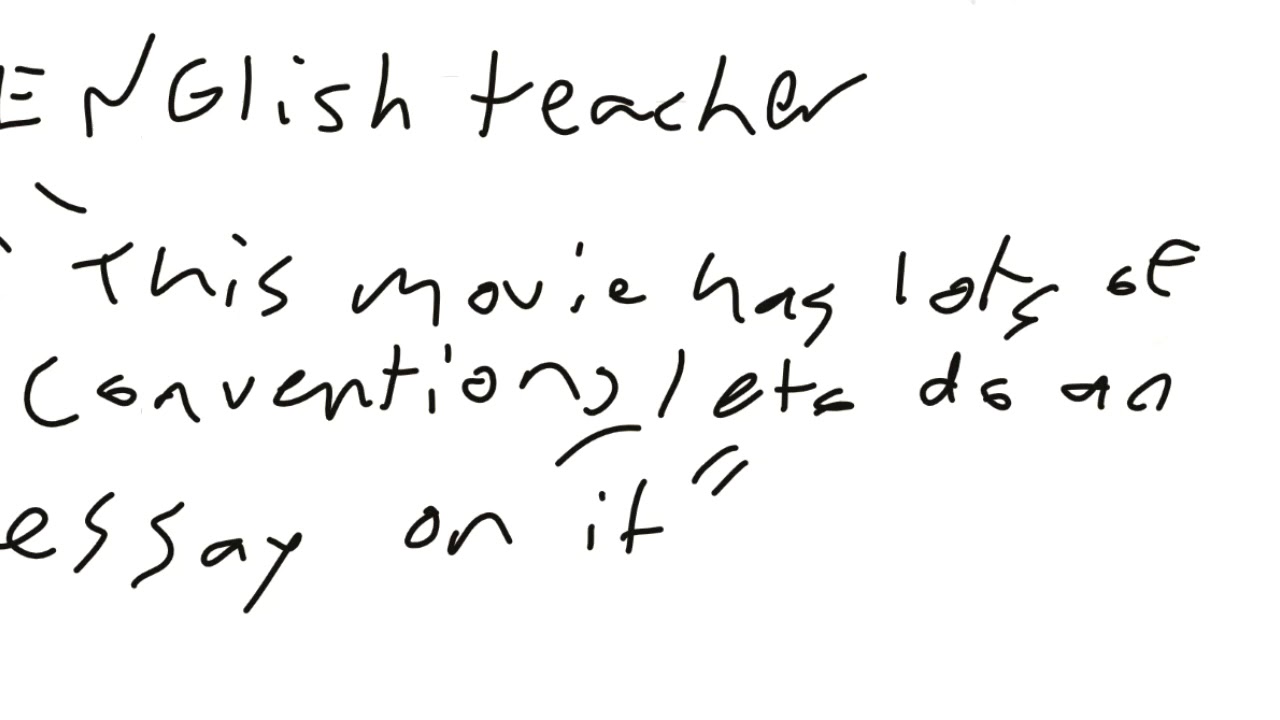 ENGlish teacher
"This movie has lots of
conventions lets do an
essay on it"